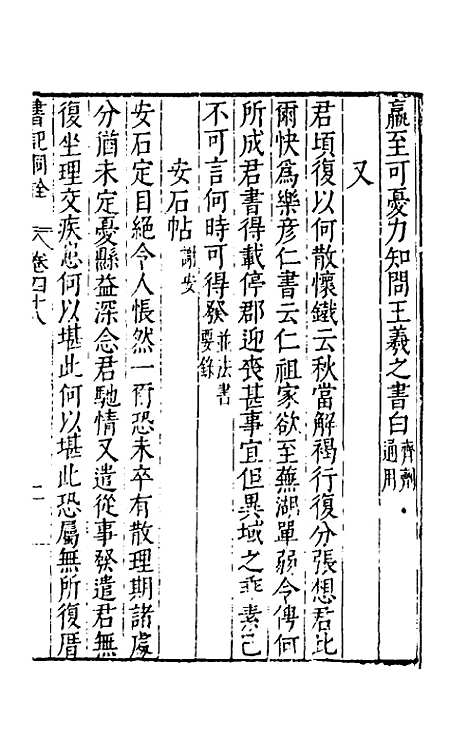 羸至可憂力知問王羲之書白齊劑通用
又
君頃復以何散懷鐵云秋當解褐行復分張想君比
爾快爲樂彥仁書云仁祖家欲至蕪湖單弱令俜何
所成君書得載停郡迎喪甚事宜但異域之乖素已
不可言何時可得發並法書要錄
安石帖謝安
安石定目絕令人悵然一爾恐未卒有散理期諸處
分猶未定憂懸益深念君馳情又遣從事發遣君無
復坐理交疾患何以堪此何以堪此恐屬無所復厝
書記洞詮 卷四十八 二